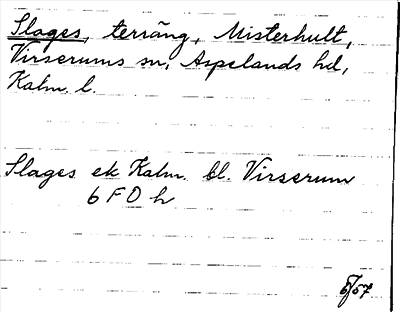 Slages, terräng, Misterhult,
Virserums sn, Aspelands hd,
Kalm. l.
Slages ek Kalm. bl. Virserum
6 F 0 h
6/57